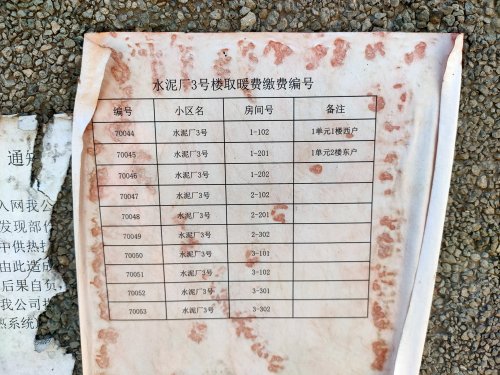 水泥厂3号楼取暖费缴费编号
编号 小区名 房间号 备注
70044 水泥厂3号 1-102 1单元1楼西户
70045 水泥厂3号 1-201 1单元2楼东户
70046 水泥厂3号 1-202
70047 水泥厂3号 2-102
70048 水泥厂3号 2-201
70049 水泥厂3号 2-302
70050 水泥厂3号 3-101
70051 水泥厂3号 3-102
70052 水泥厂3号 3-301
70053 水泥厂3号 3-302
通知
入网我公
发现部
中供热
由此造成
后果自负
我公司
热系统